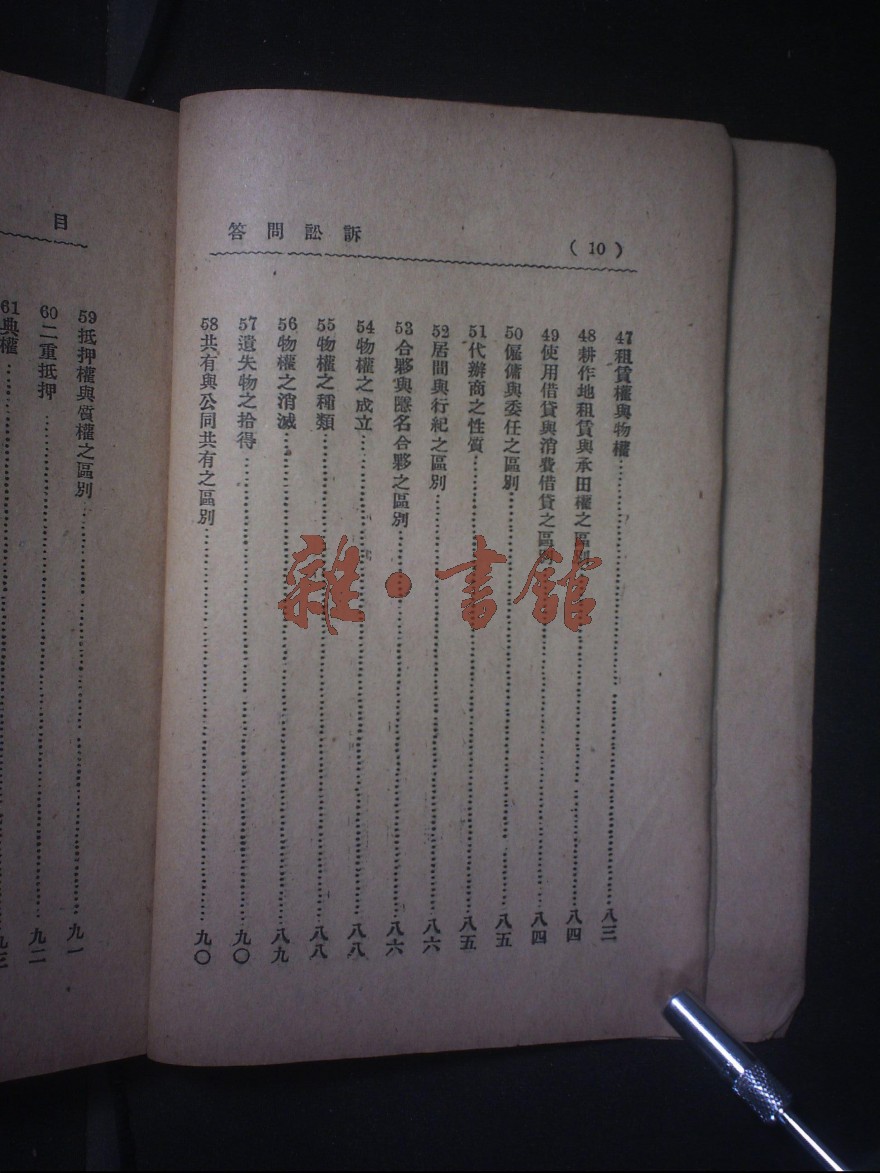 訴訟問答
(10)
47租賃權與物權……八三
48耕作地租賃與永田權之區別……八四
49使用借貸與消費借貸之區別……八四
50僱傭與委任之區別……八五
51代辦商之性質……八五
52居間與行紀之區別……八六
53合夥與隱名合夥之區別……八六
54物權之成立……八八
55物權之種類……八八
56物權之消滅……八九
57遺失物之拾得……九〇
58共有與公同共有之區別……九〇
目
59抵押權與質權之區別……九一
60二重抵押……九二
61典權……九三
雜·書館